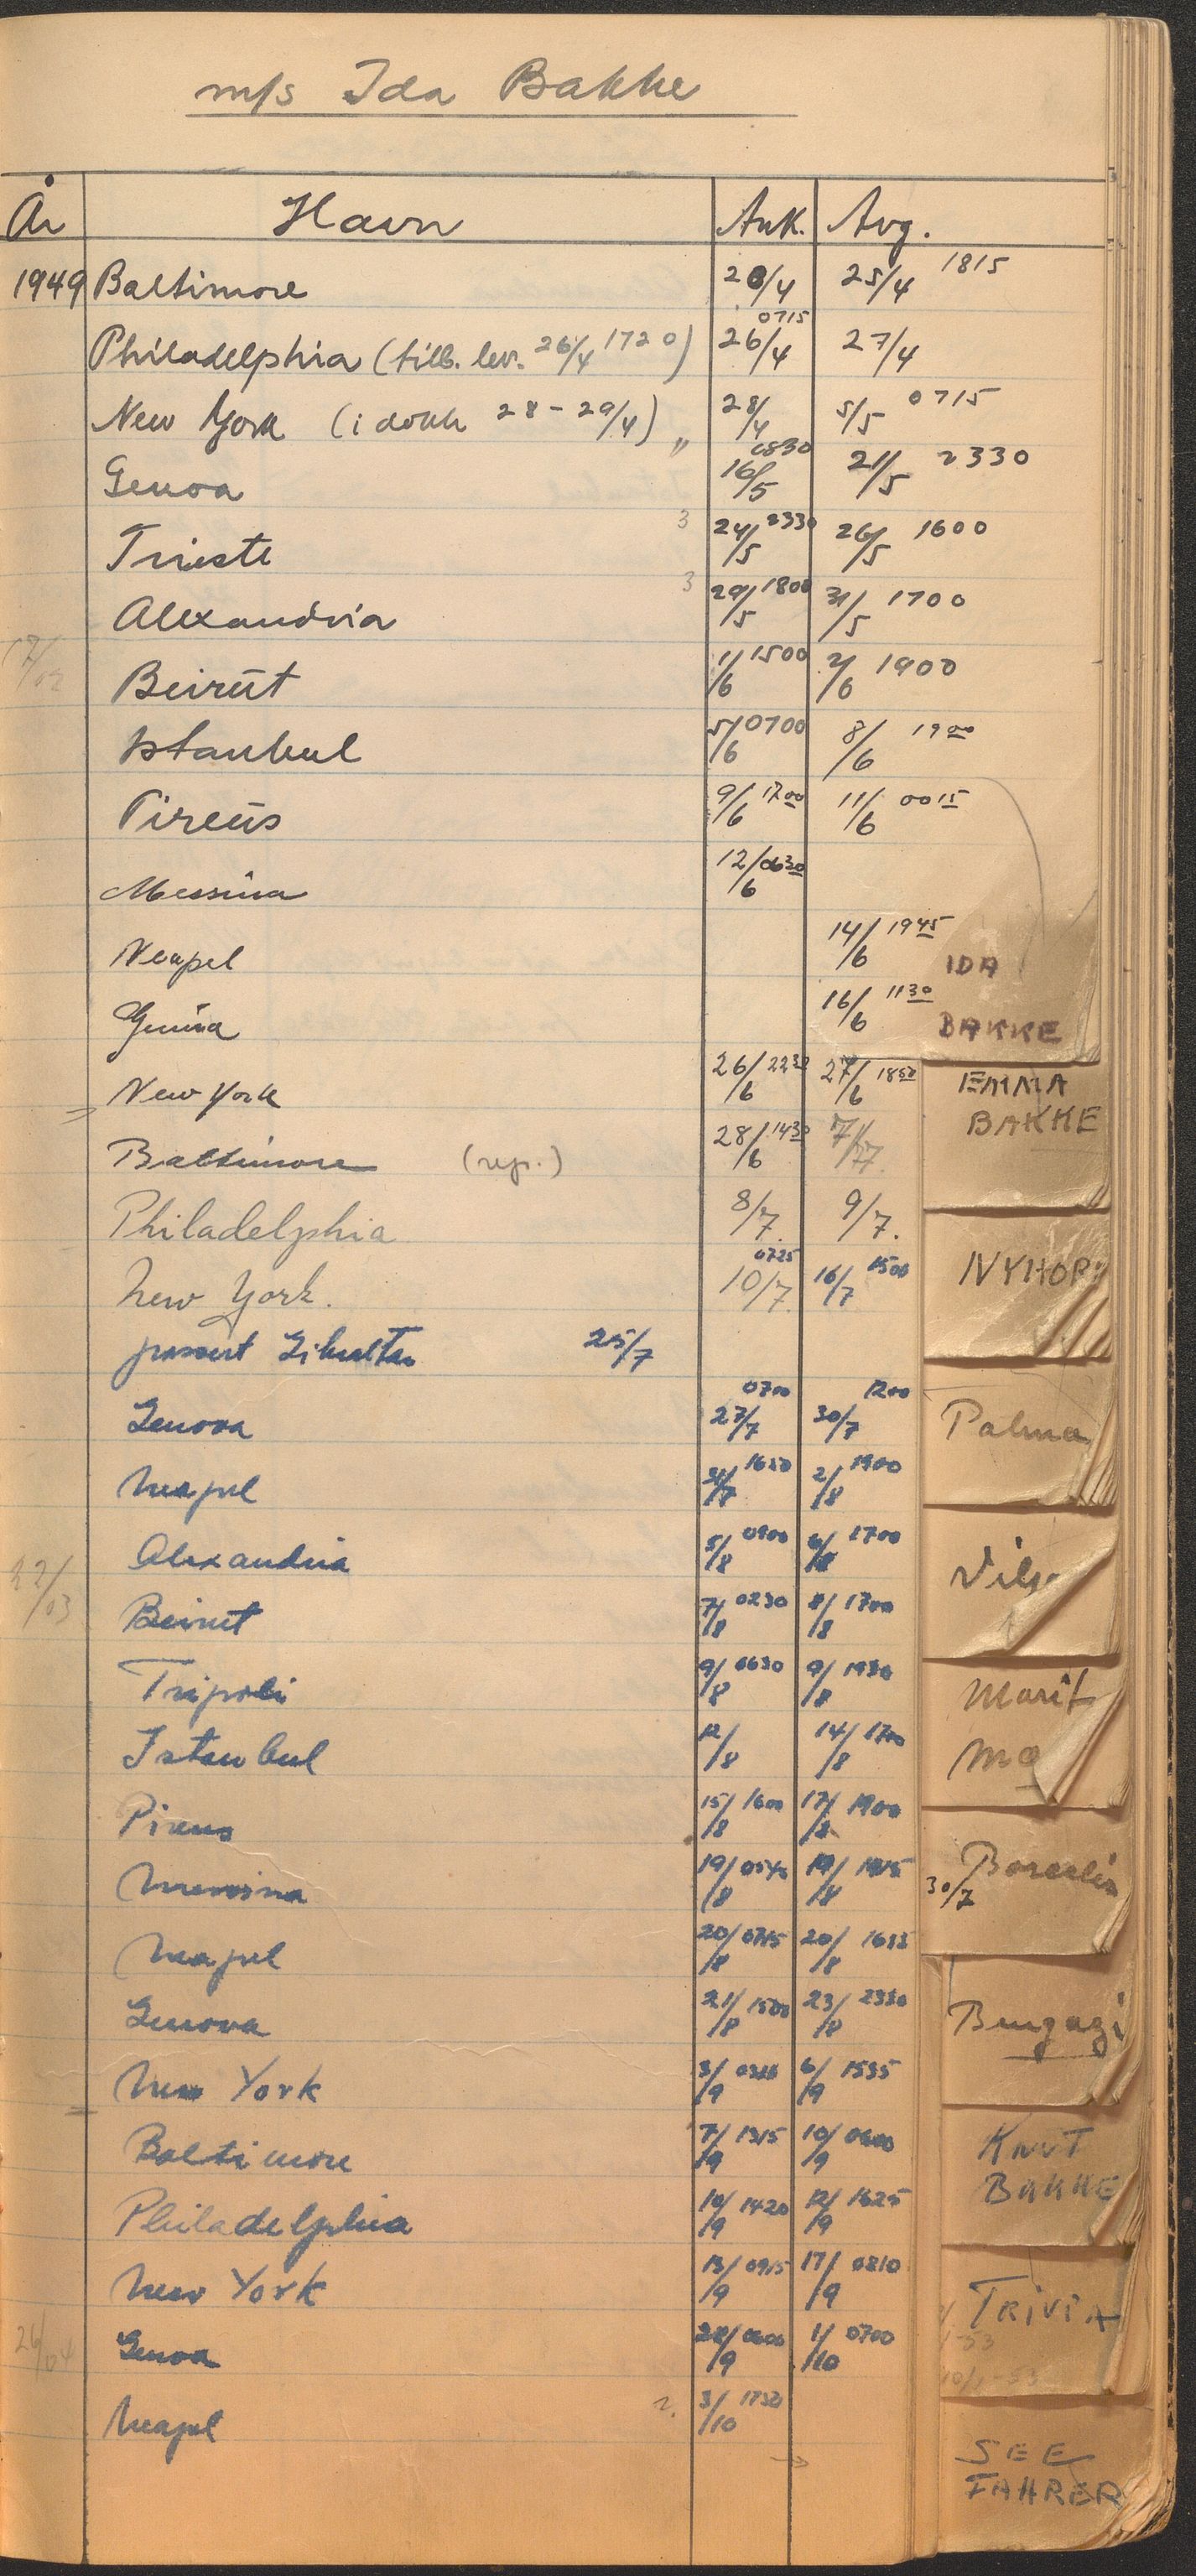 m/s Ida Bakke
År Havn Ank. Avg.
1949 Baltimore 20/4 25/4 1815
Philadelphia (tilb. lev. 26/4 1720) 26/4 0715 27/4
New York (i dokk 28-29/4) " 28/4 5/5 0715
Genoa 16/5 0830 21/5 2330
Trieste 3 24/5 2330 26/5 1600
Alexandria 3 29/5 1800 31/5 1700
Beirut 1/6 1500 2/6 1900
Istanbul 5/6 0700 8/6 1900
Pireus 9/6 1700 11/6 0015
Messina 12/6 0630
Neapel 14/6 1945
Genua 16/6 1130
New York 26/6 2230 27/6 1850
Baltimore (rep.) 28/6 1430 7/7
Philadelphia 8/7. 9/7.
New York. 10/7. 0725 16/7 1500
passert Gibraltar 25/7
Genova 27/7 0700 30/7 1200
Neapel 31/7 1650 2/8 1900
Alexandria 5/8 0900 6/8 1700
Beirut 7/8 0230 8/8 1700
Tripoli 9/8 0630 9/8 1930
Istanbul 12/8 14/8 1700
Pireus 15/8 1600 17/8 1900
Messina 19/8 0540 19/8
Neapel 20/8 0745 20/8 1635
Genova 21/8 1500 23/8 2330
New York 3/9 6/9 1535
Baltimore 7/9 1315 10/9 0600
Philadelphia 10/9 1420 12/9 1625
New York 13/9 0915 17/9 0810
Genoa 28/9 0600 1/10 0700
Neapel 2. 3/10 1730
IDA
BAKKE
EMMA
BAKKE
NYHOR
Palma
Vils
Marit
Ma
Borealis
30/7
Bengazi
KNUT
BAKKE
TRIVIA
10/1-53
SEE
FAHRER